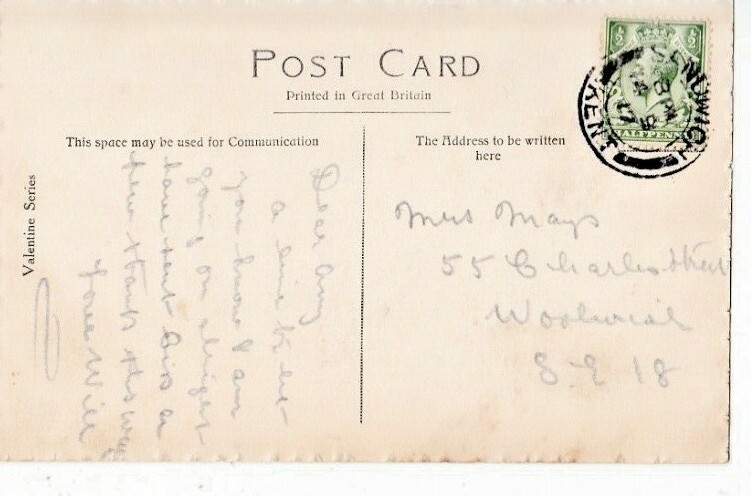 POST CARD
Printed in Great Britain
This space may be used for Communication
The Address to be written
here
Valentine Series
½ ½
HALFPENNY
SANDWICH
KENT
Dear Amy
a line to let
you know I am
going on alright
have sent Siss a
few things
love Will
Mrs Mays
55 Charles Street
Woolwich
S-E 18